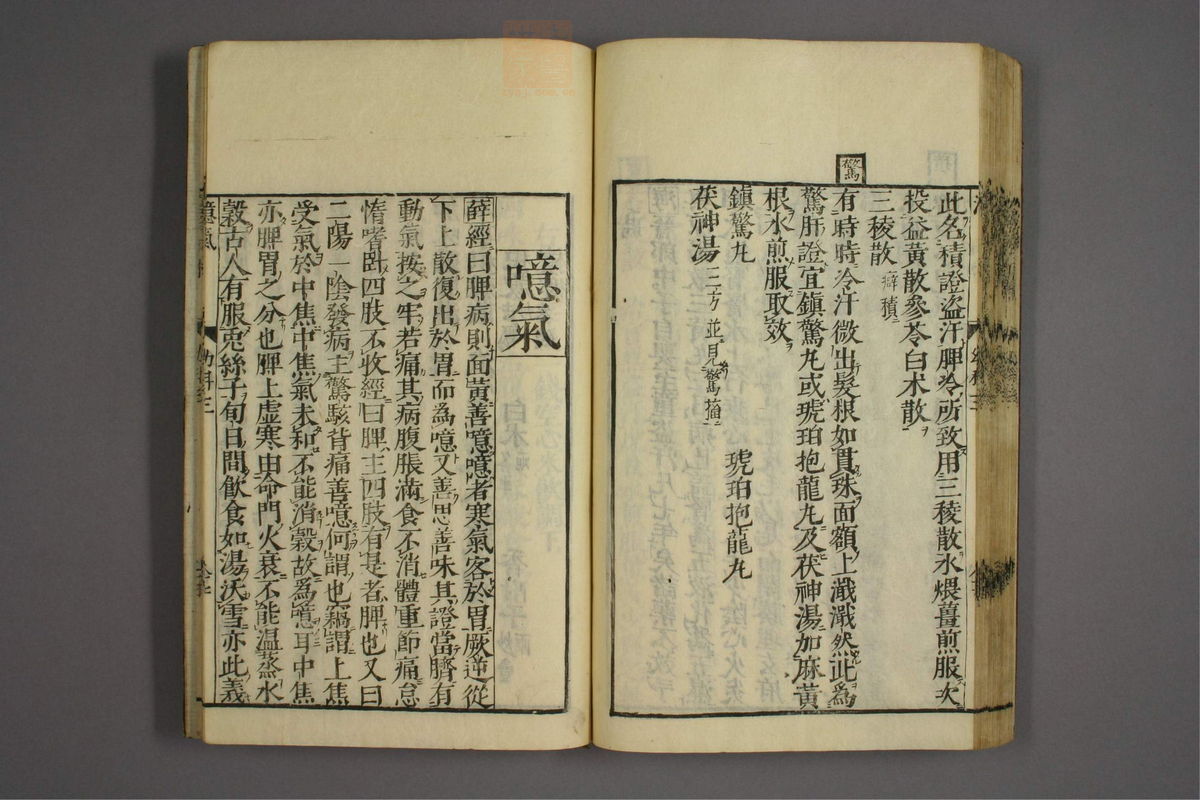 此名積證盜汗脾冷所致用三稜散水煨薑煎服次
投益黃散參苓白朮散
三稜散 癖積
驚
有時時冷汗微出髮根如貫珠面額上濈濈然此爲
驚肝證宜鎮驚丸或琥珀抱龍丸及茯神湯加麻黃
根水煎服取效
鎮驚丸 琥珀抱龍丸
茯神湯 二方並見驚搐
噫氣
薛經曰脾病則面黃善噫噫者寒氣客於胃厥逆從
下上散復出於胃而為噫又善思善味其證當臍有
動氣按之牢若痛其病腹脹滿食不消體重節痛怠
惰嗜臥四肢不收經曰脾主四肢有是者脾也又曰
二陽一陰發病主驚駭背痛善噫何謂也竊謂上焦
受氣於中焦中焦氣未和不能消穀故爲噫耳中焦
亦脾胃之分也脾上虛寒由命門火衰不能溫蒸水
穀古人有服兎絲子旬日間飲食如湯沃雪亦此義
噫氣
幼科三